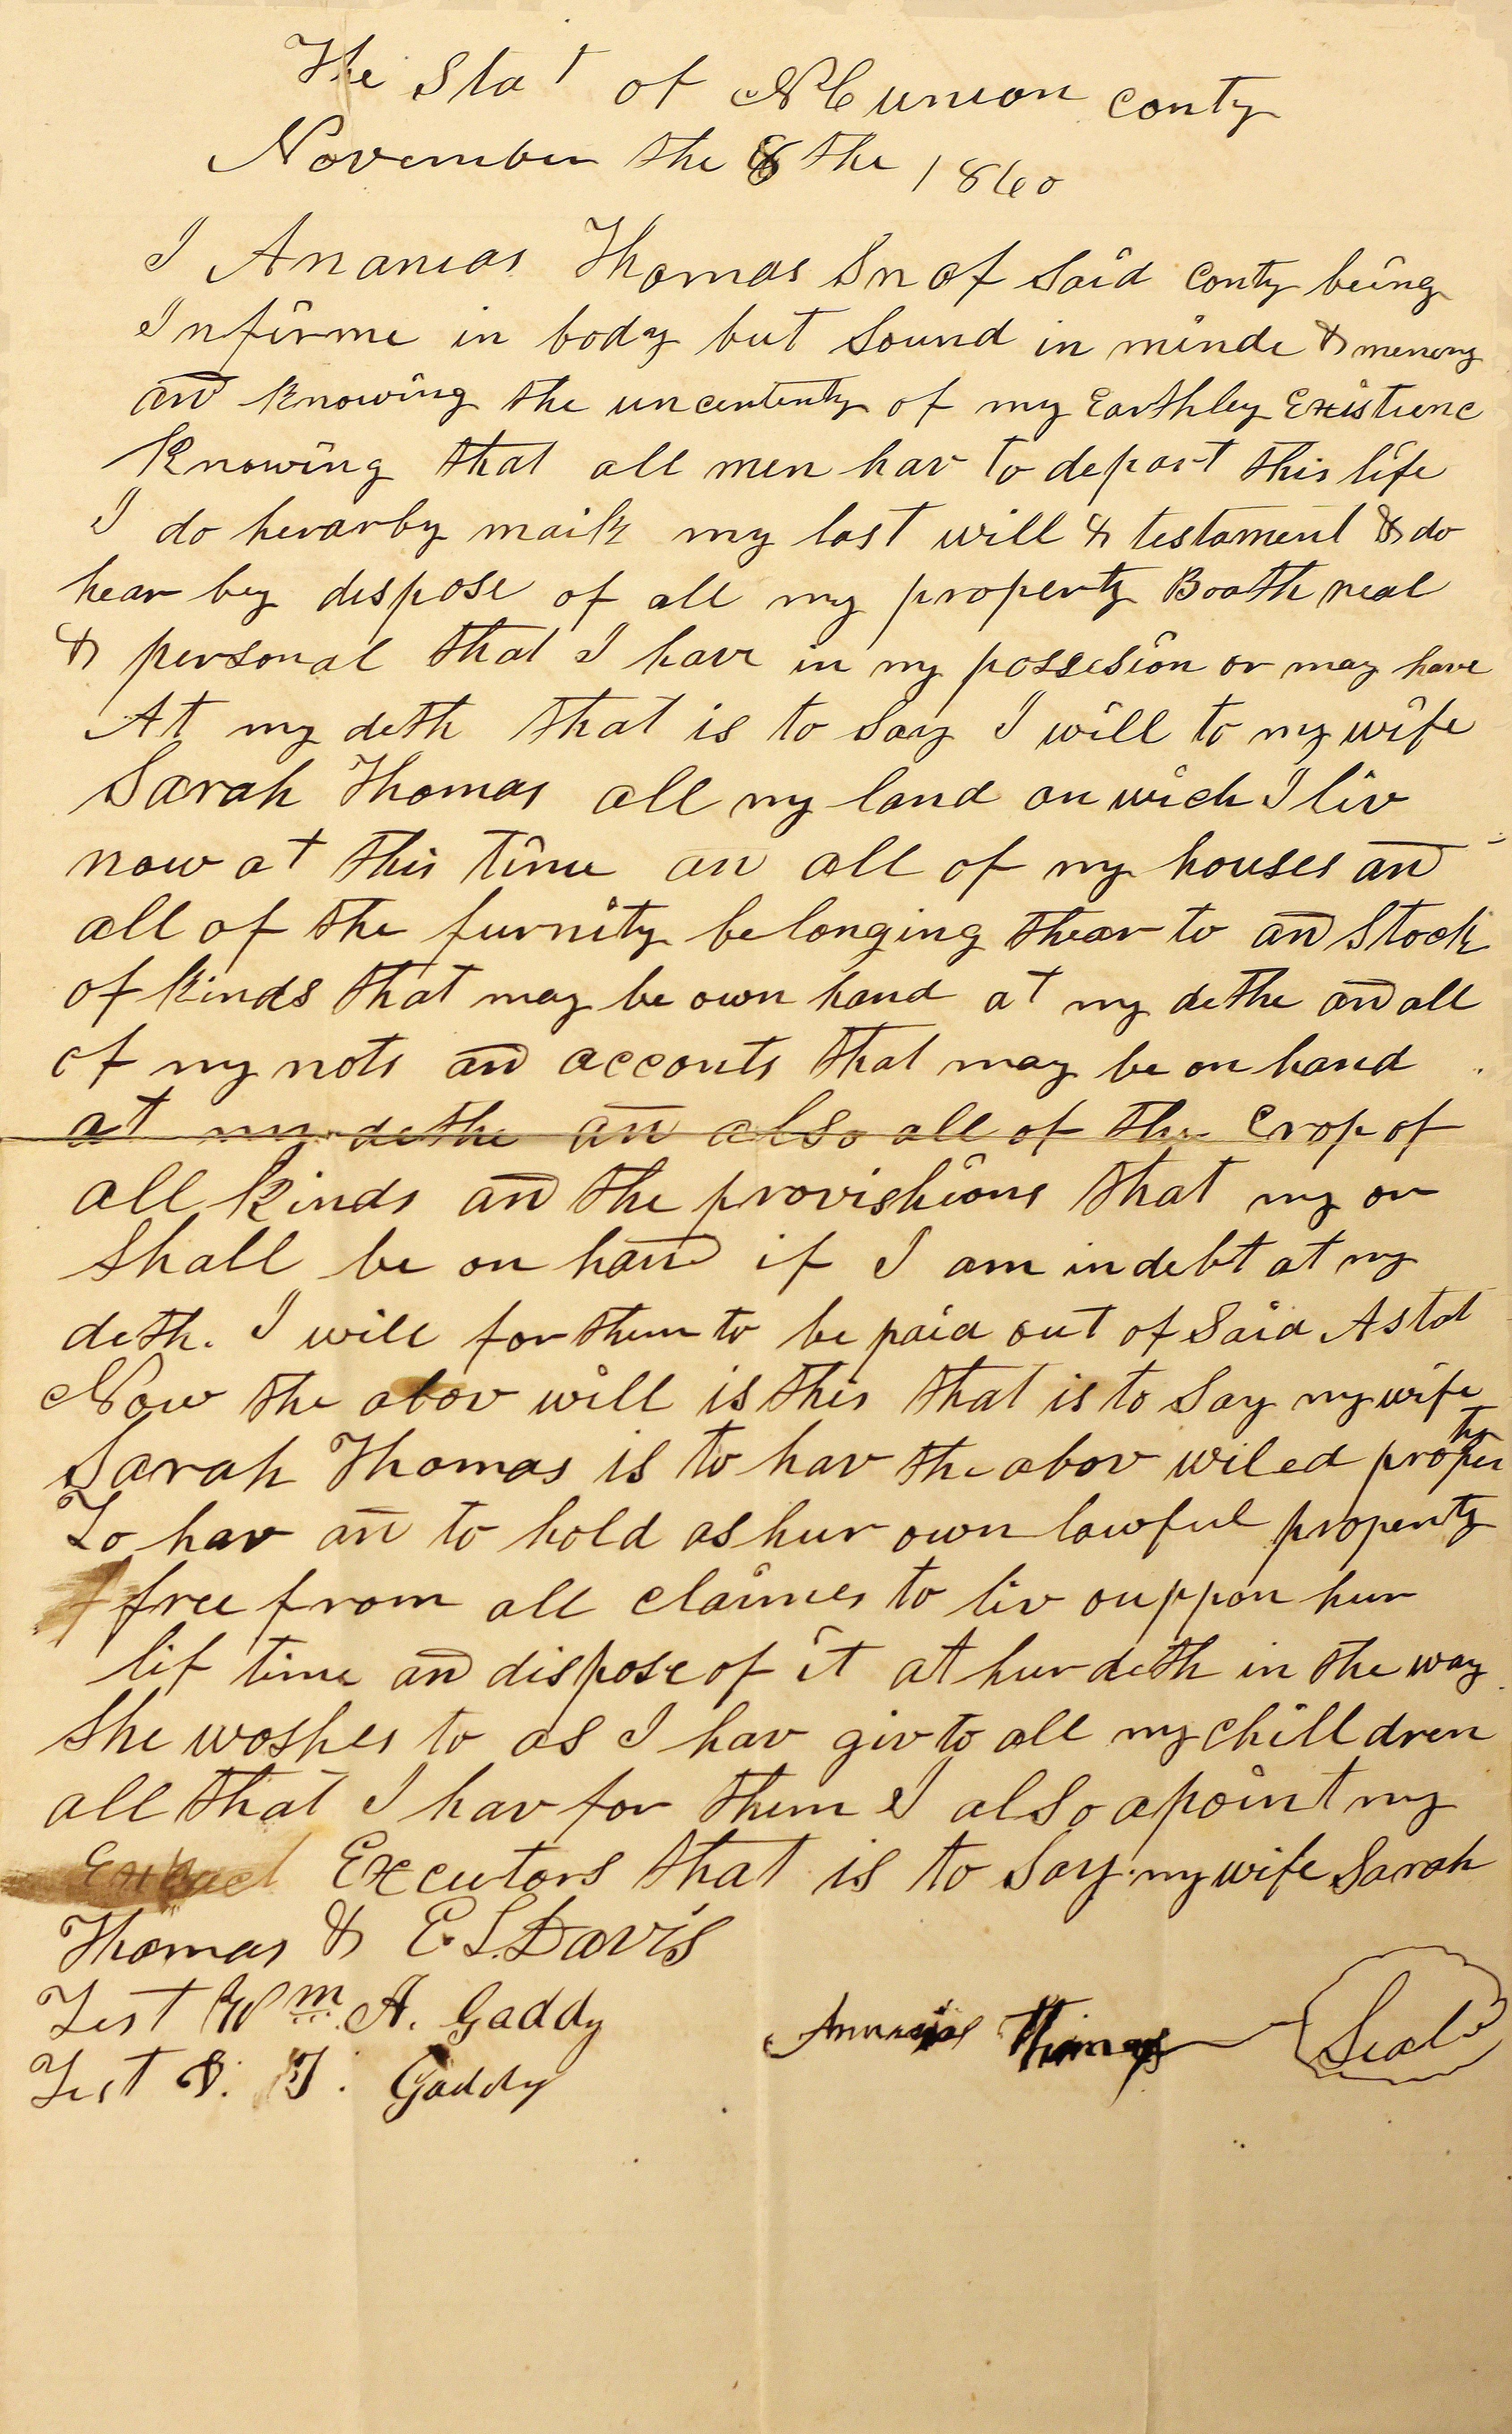 The Stat of NC union conty
November the 8 the 1860
I Ananias Thomas Sr of Said conty being
Infirme in body but Sound in minde & memory
and knowing the uncertenty of my Earthley Existienc
Knowing that all men hav to depart this life
I do hearby maik my last will & testament & do
hear by dispose of all my property Booth real
& personal that I have in my possesion or may have
At my deth that is to Say I will to my wife
Sarah Thomas all my land on wich I liv
now at this time an all of my houses and
all of the furnity belonging thear to and Stock
of kinds that may be own hand at my dethe and all
of my nots and acconts that may be on hand
at my dethe an also all of the Crop of
all kinds and the provishions that my or
Shall be on hand if I am in debt at my
deth. I will for them to be paid out of Said Astat
Now the abov will is this that is to Say my wife
Sarah Thomas is to hav the abov wiled property
To hav an to hold as hur own lawful property
free from all claimes to liv ouppon hur
lif time and dispose of it at hur deth in the way
She woshes to as I hav giv to all my chilldren
all that I hav for them I also apoint my
Executors that is to Say my wife Sarah
Thomas & E. S. Davis
Test Wm A. Gaddy
Ananias Thomas Seal
Test S. T. Gaddy